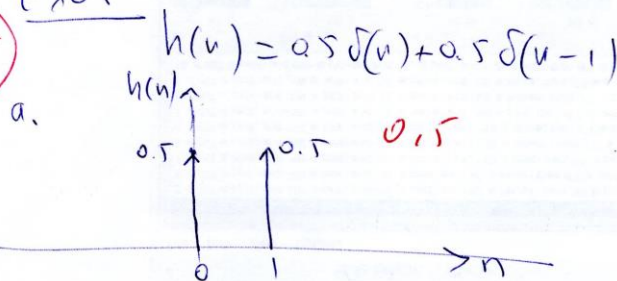 h(n) = 0.5 δ(n) + 0.5 δ(n-1)
h(n)
a.
0.5 0.5 0,5
0 1 n